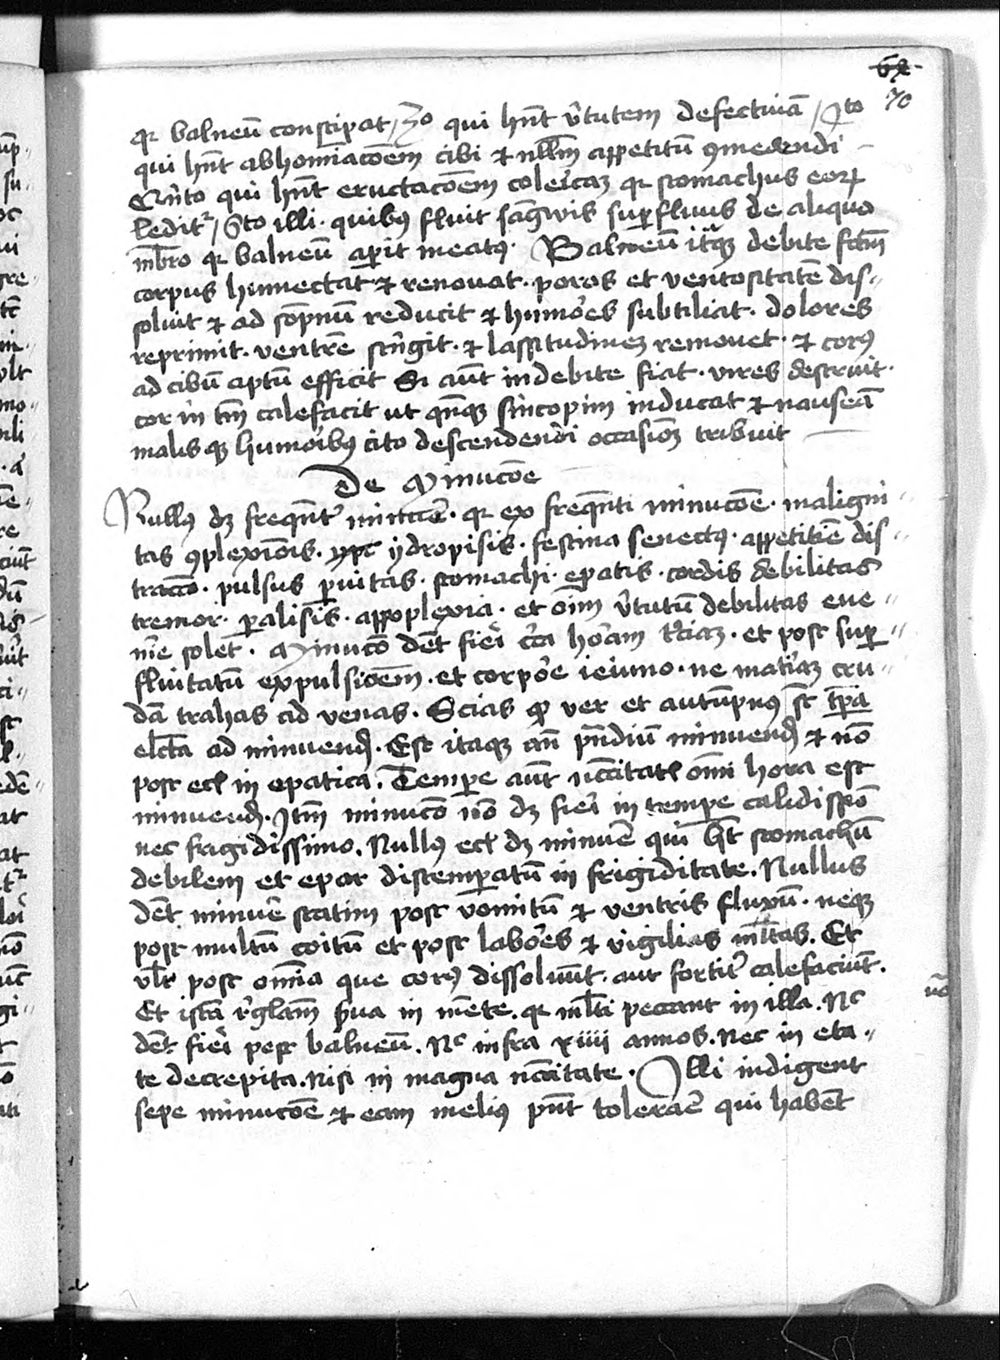 70
qr balneū constipat / 3o qui hn̄t v̄tutem defectiuā / Qto
qui hn̄t abhomiacōem cibi et nllm̄ appetitū 9medendi
Qui̅to qui hn̄t eructacōem coleīcaʒ qr stomachus eoꝝ
leditr / Sto illi . quibꝰ fluit sāgwis suꝑfluus de aliquo
mb̄ro qr balneū aꝑit meatꝰ . Balneū itaqʒ debite fc̄m
corpus humectat et renouat . poros et ventositatē dis-
soluit et ad sōpnum reducit et humōes subtiliat . dolores
reprimit . ventrē st̄ngit . et lassitudineʒ remouet . et corpꝰ
ad cibū aptū efficit Si aūt indebite fiat . vires destruit .
cor in tm̄ calefacit ut qn̄qʒ sincopim inducat et nauseā
malis qʒ humoribꝰ cito descendendi occasionʒ tribuit
De Minucōe
Nullꝰ dʒ freqn̄tr minuē . qr ex freqn̄ti minucōe . maligni-
tas 9plexionis . ydropisis . festina senectꝰ . appetitiē dis-
traccō . pulsus ꝑuitas . stomachi . epatis . cordis debilitas
tremor . ꝑalisis . appoplexia . et oīm v̄tutū debilitas eue-
nīe solet . Minucō dēt fieri cc̄a horam tc̄iaʒ . et post suꝑ-
fluitatū expulsiōem . et corpōe ieiuno . ne mat̄iaʒ cru-
dā trahas ad venas . Scias qꝫ ver et autūpnꝰ st̄ tp̄a
elc̄ta ad minuendꝭ . Est itaqʒ an̄ pn̄diū minuendꝭ et nō
post ecꝭ in epatica . Tempe aūt nc̄citatꝭ om̄i hora est
minuendꝭ . Itm̄ minucō nō dʒ fieri in tempe calidissīo
nec fragidissimo . Nullꝰ ecꝭ dʒ minuē qui hꝫt stomachū
debilem et epar distemꝑatū in frigiditate . Nullus
dēt minuē statim post vomitū et ventris fluxū . neqʒ
post multū coitū et post labōes et vigilias ml̄tas . Et
vl̄r post omīa que corpꝰ dissoluūt . aut fortitr̄ calefaciūt .
Et istā r̄glam̄ ꝓua in mēte . qr ml̄ti peccant in illa . Nc
dēt fieri post balneū . Nc infra xiiii annos . Nec in eta-
te decrepita . Nisi in magna nc̄citate . Illi indigent
sepe minucōe et eam meliꝰ pn̄t toleraē qui habēt